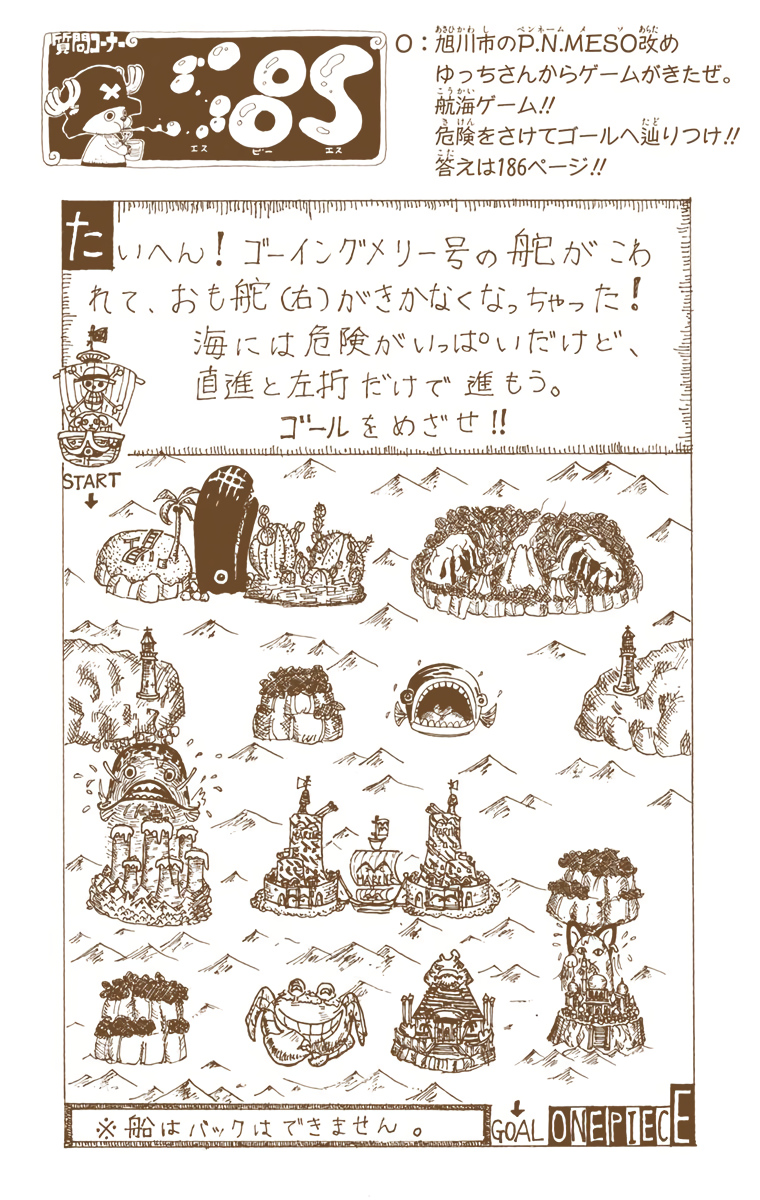 質問コーナー
SBS
エス ビー エス
O：旭川市のP.N.MESO改め
ゆっちさんからゲームがきたぜ。
航海ゲーム!!
危険をさけてゴールへ辿りつけ!!
答えは186ページ!!
たいへん！ゴーイングメリー号の舵がこわ
れて、おも舵（右）がきかなくなっちゃった！
海には危険がいっぱいだけど、
直進と左折だけで進もう。
ゴールをめざせ!!
START
MARINE
MARINE
※船はバックはできません。
GOAL
ONEPIECE